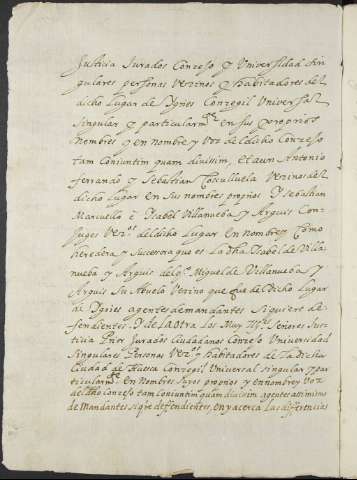 Justicia Jurados Conzejo y Universidad sin
gulares personas Vezinos y habitadores del
dicho Lugar de Ygries Conzegil Universal
singular y particularmte en sus propios
Nombres y en nombre y Voz del dicho Conzejo
tam Coniuntim quam diuisim, et aun Antonio
ferrando y Sebastian Cosculluela Vezinos del
dicho Lugar en sus nombres propios y sebastian
Marcuello è Ysabel Villanueba y Arguis Con-
Juges Vezos del dicho Lugar En Nombre y Como
heredera y Sucesora que es La dha Isabel de Villa
nueba y Arguis del qo Miguel de Villanueba y
Arguis su Abuelo Vezino que fue del dicho Lugar
de Ygries agentes demandantes siquiere de-
fendientes. y de La otra Los Muy Illes Señores Jus-
ticia Prior Jurados Ciudadanos Conzejo Universidad
singulares Personas Vezos y habitadores de La dicha
Ciudad de Huesca Conzegil Universal singular y par-
ticularmte En Nombres suyos propios y en nombre y Voz
del dho Conzejo tam Coniuntim quam diuisim agentes assimismo
demandantes siqre defendientes, en y acerca Las differencias